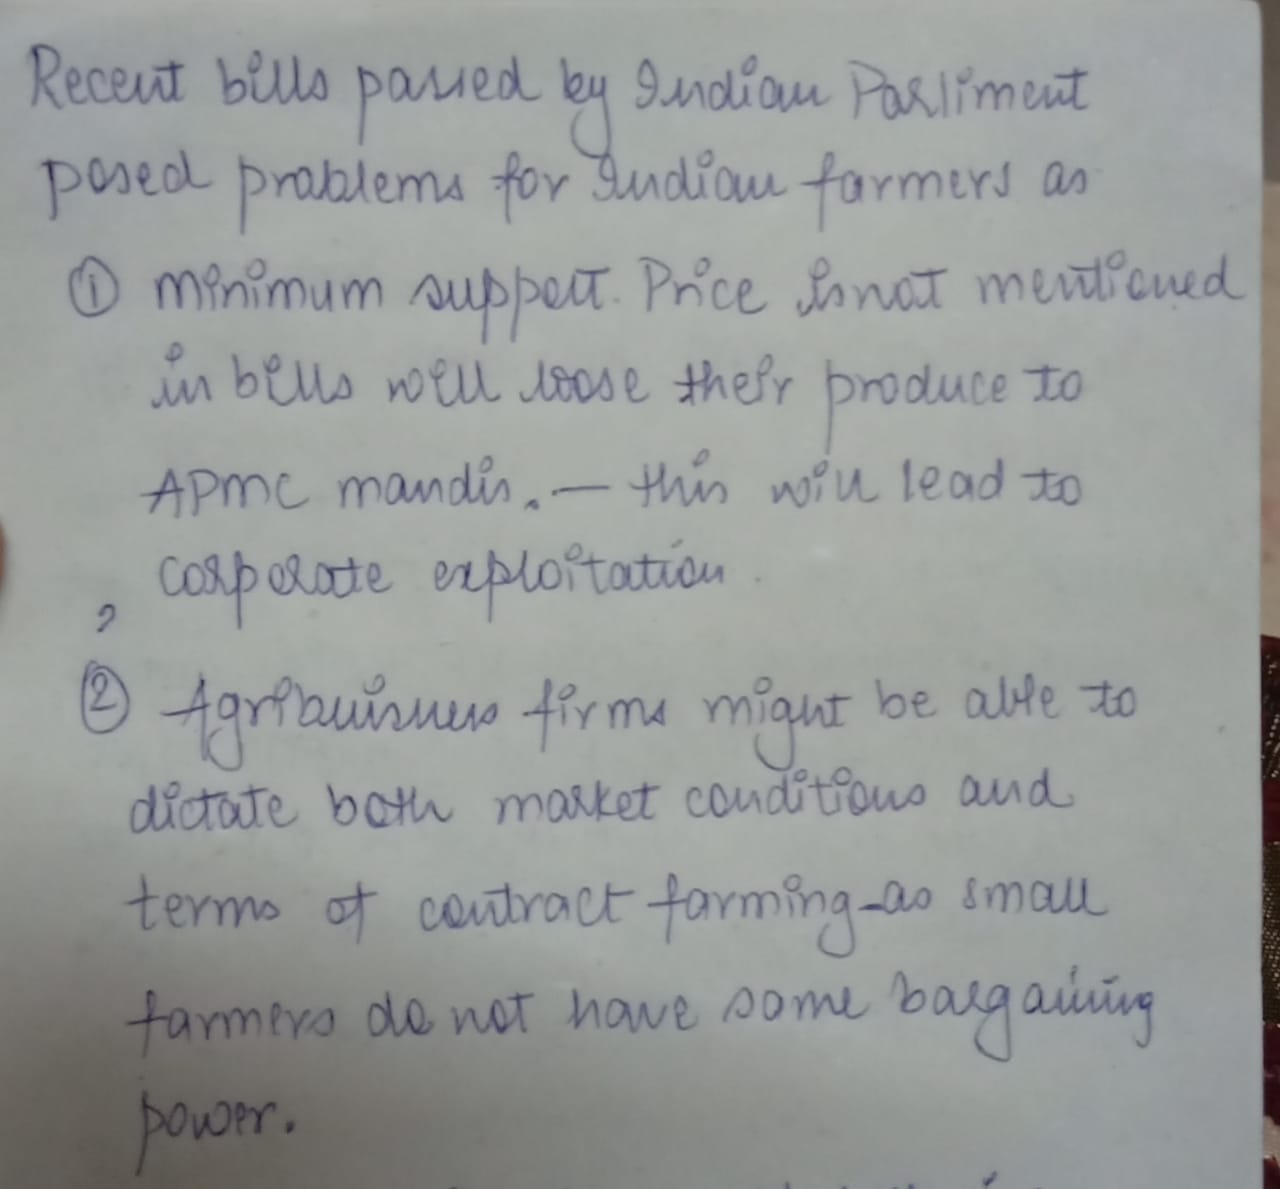 Recent bills passed by Indian Parliment
posed problems for Indian farmers as
① minimum support. Price is not mentioned
in bills will loose their produce to
APMC mandis. — this will lead to
corporate exploitation.
?
② Agribuisness firms might be able to
dictate both market conditions and
terms of contract farming - as small
farmers do not have same bargaining
power.